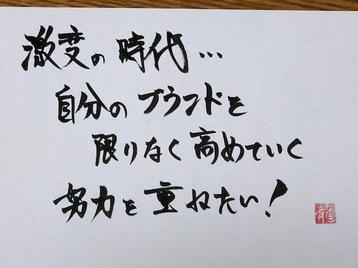 激変の時代…
自分のブランドを
限りなく高めていく
努力を重ねたい!
龍